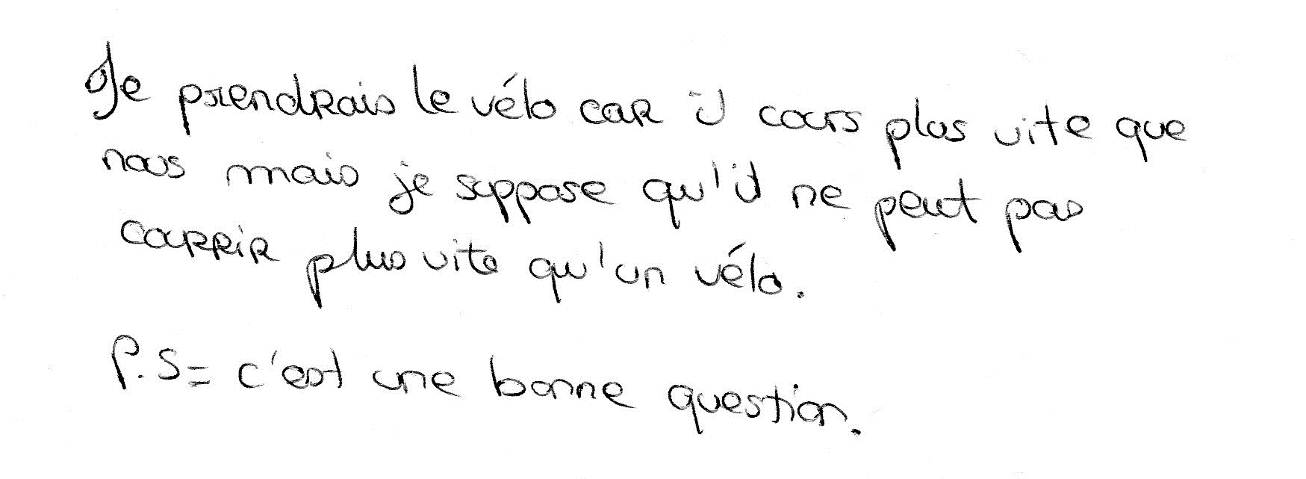 Je prendrais le vélo car il cours plus vite que
nous mais je suppose qu'il ne peut pas
courrir plus vite qu'un vélo.
P.S= c'est une bonne question.